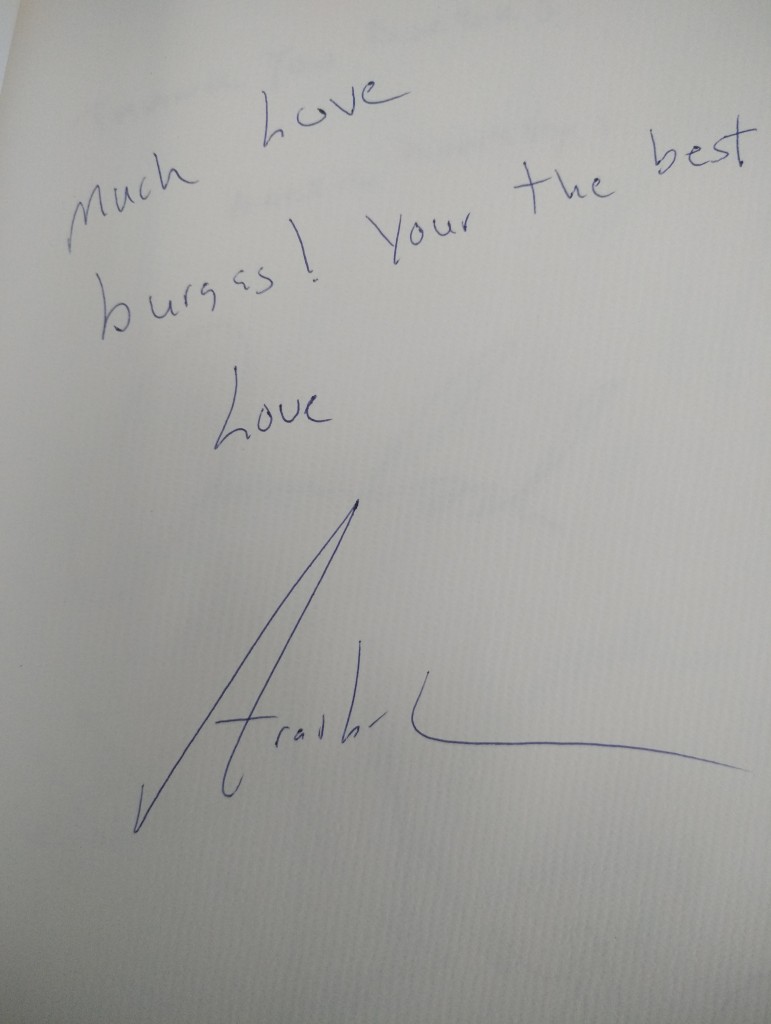 Much Love
burgas! Your the best
Love
Arash